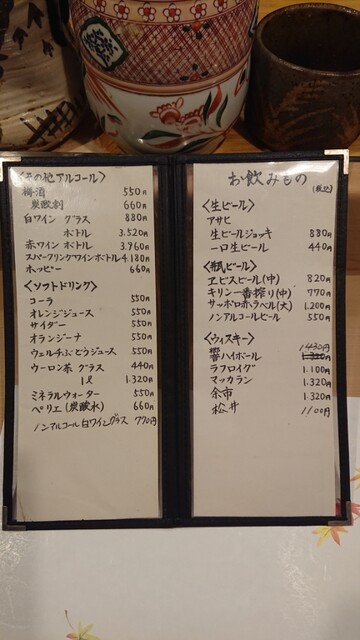 <その他アルコール>
梅酒 550円
炭酸割 660円
白ワイン グラス 880円
ボトル 3.520円
赤ワイン ボトル 3.960円
スパークリングワインボトル 4.180円
ホッピー 660円
<ソフトドリンク>
コーラ 550円
オレンジジュース 550円
サイダー 550円
オランジーナ 550円
ウェルチぶどうジュース 550円
ウーロン茶 グラス 440円
1ℓ 1.320円
ミネラルウォーター 550円
ペリエ(炭酸水) 660円
ノンアルコール白ワイングラス 770円
お飲みもの
(税込)
<生ビール>
アサヒ
生ビールジョッキ 880円
一口生ビール 440円
<瓶ビール>
ヱビスビール(中) 820円
キリン一番搾り(中) 770円
サッポロ赤ラベル(大) 1.200円
ノンアルコールビール 550円
<ウィスキー>
1430円
響ハイボール 1.320円
ラフロイグ 1.100円
マッカラン 1.320円
余市 1.320円
松井 1100円